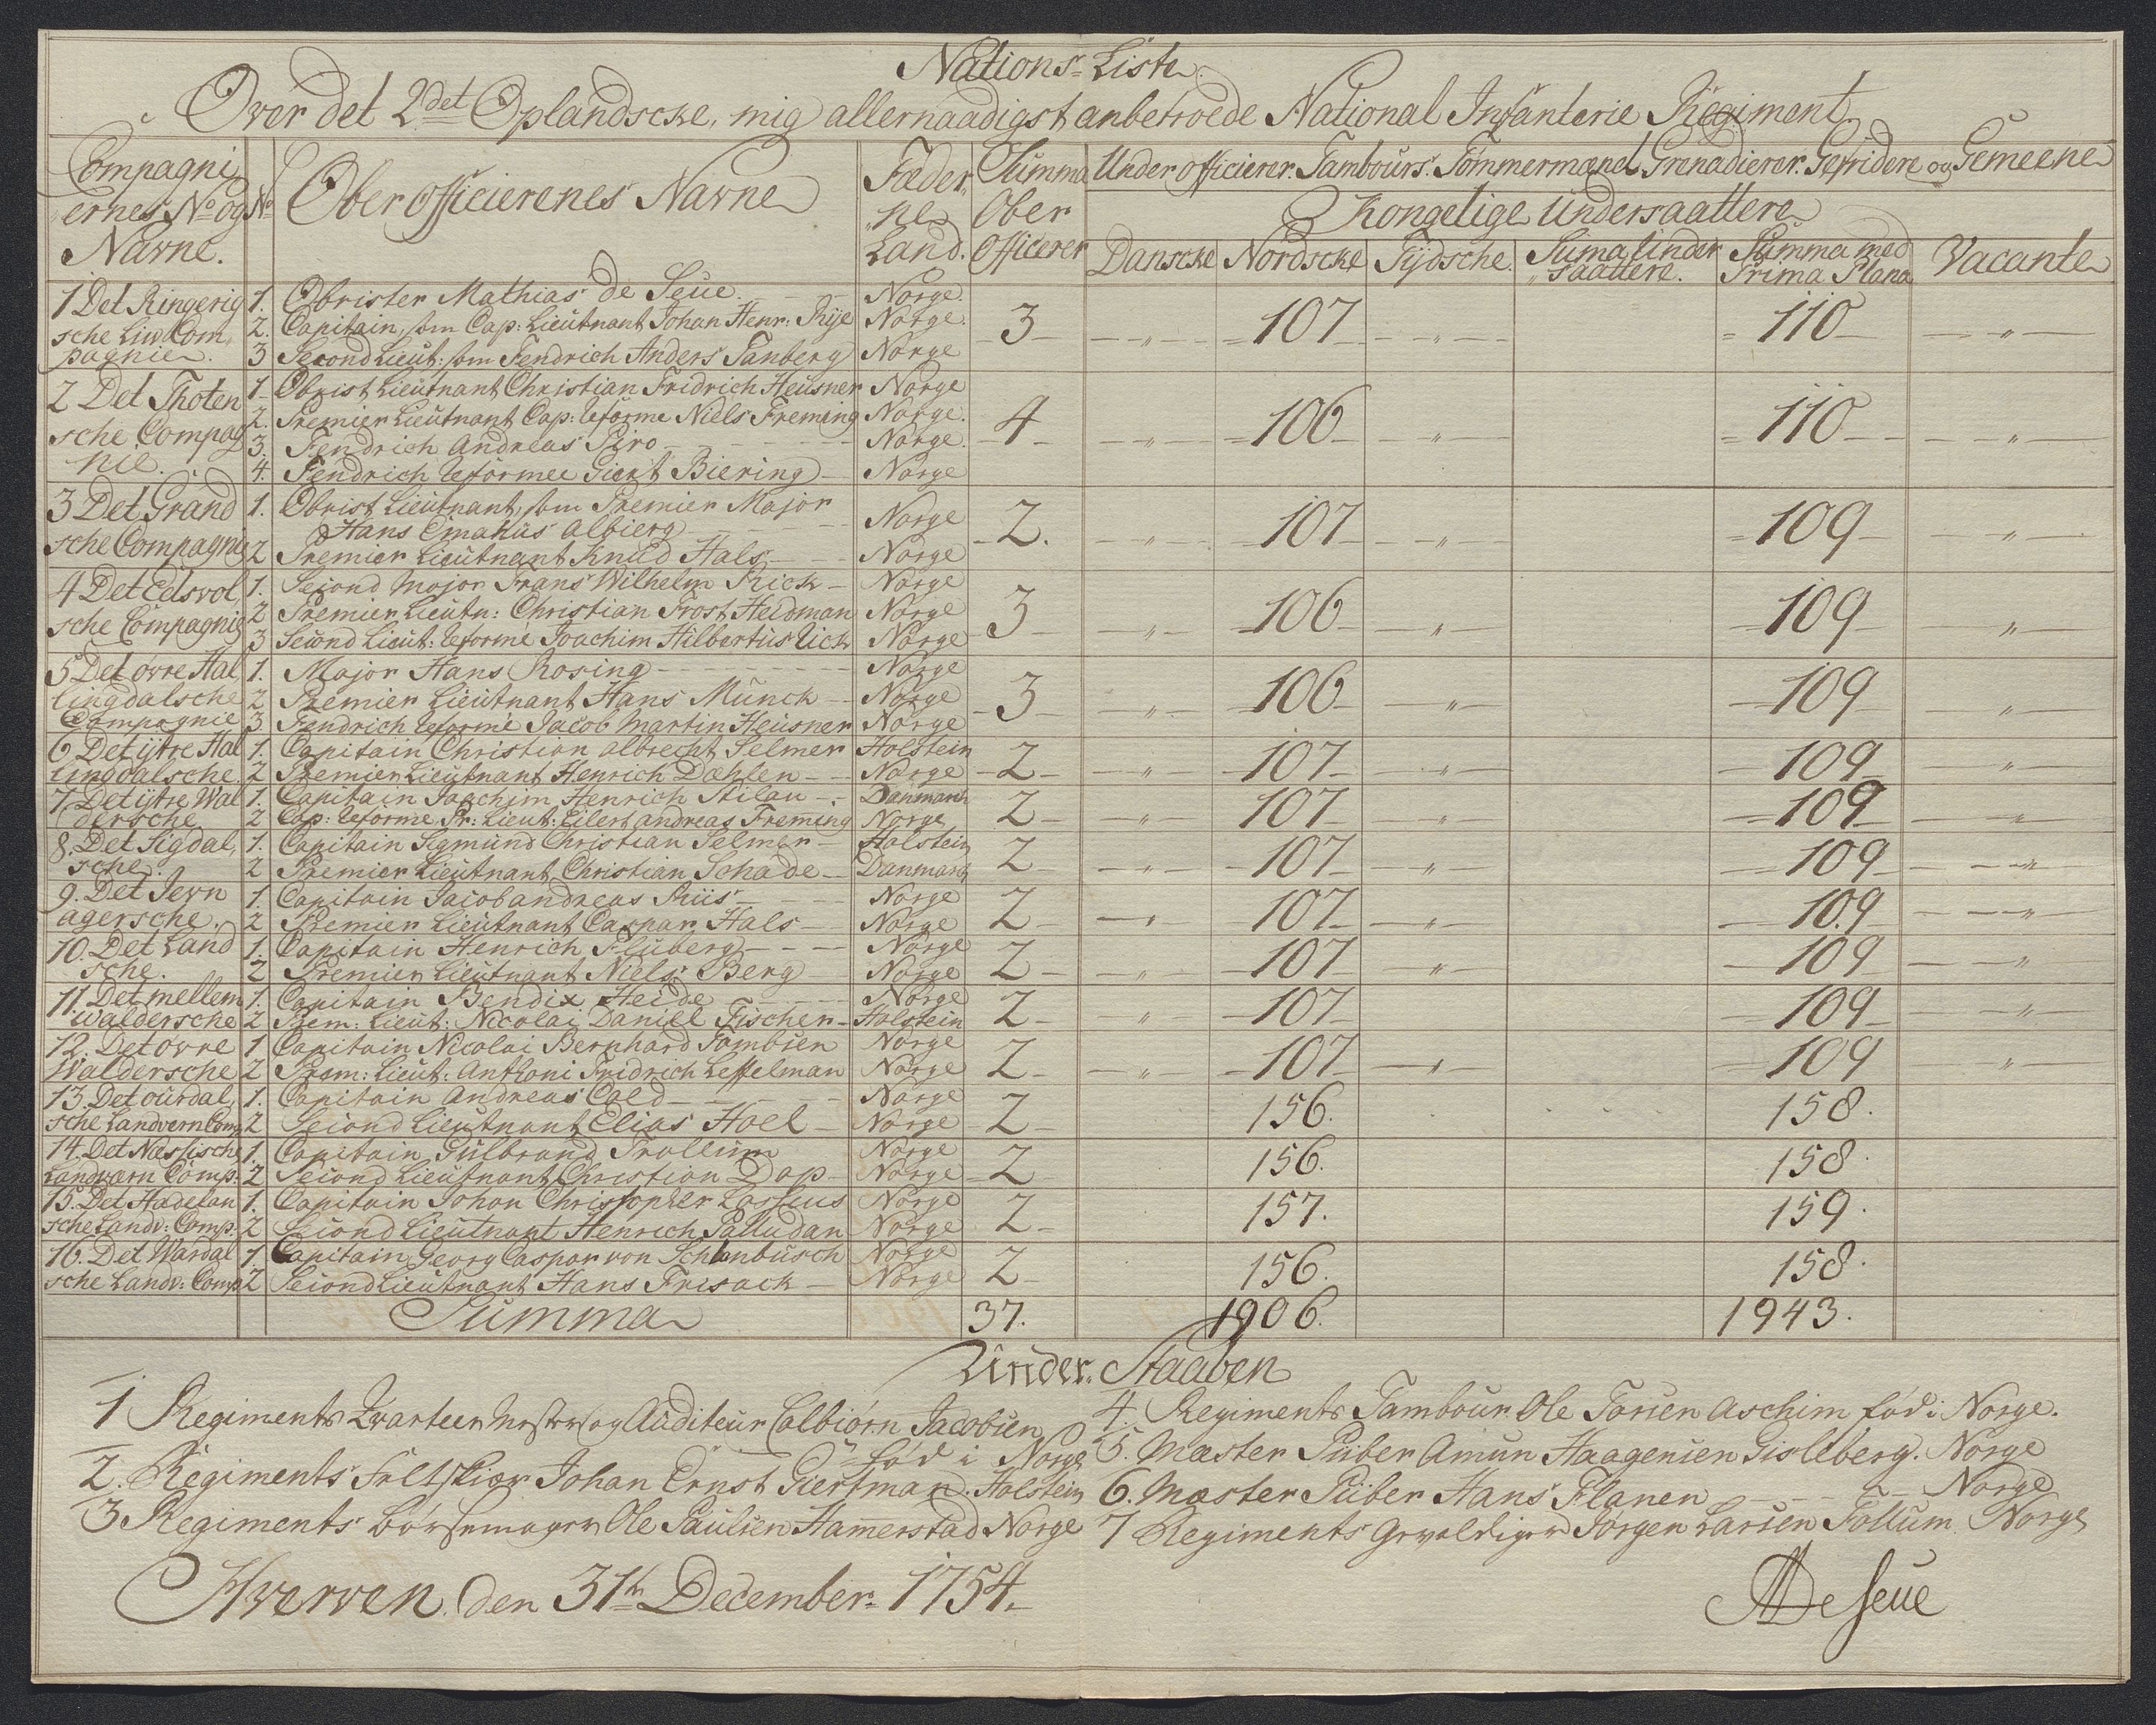 Nations-Liste
Over det 2det Oplandscke, mig allernaadigst anbetroede National Infanterie Regiment.
Compagni ernes No og Navne. | No | Ober officierenes Navne | Fæder ne Land. | Summa Ober Officerer | Under officierer. Tambours. Tømmermænd. Grenadierer. Gefridere og Gemeene
Kongelige Undersaattere
Danscke | Nordscke | Tydsche. | Suma Under saattere. | Summa med Prima Plana | Vacante
1 Det Ringerig sche Liw Com pagnie. | 3 | 107 | 110
1. Obrister Mathias de Seue | Norge.
2. Capitain, som Cap: Lieutnant Johan Henr: Rije | Norge.
3 Second Lieut: som Fendrich Anders Tanberg | Norge
2 Det Thoten sche Compag nie. | 4 | 106 | 110
1. Obrist Lieutnant Christian Fridrich Heusner | Norge
2. Premier Lieutnant Cap: reforme Niels Freming | Norge.
3. Fendrich Andreas Piro | Norge.
4. Fendrich reformee Giert Biering | Norge
3 Det Grand sche Compagnie | 2. | 107 | 109
1. Obrist Lieutnant, som Premier Major
Hans Emahus Albierg | Norge
2 Premier Lieutnant Knud Hals | Norge
4 Det Eidsvol sche Compagnie | 3 | 106 | 109
1. Second Major Frans Wilhelm Rick | Norge
2 Premier Lieutn: Christian Frost Heidman | Norge
3 Second Lieut: reforme Joachim Hilbertus Lick | Norge
5 Det øvre Hal lingdalsche Compagnie | 3 | 106 | 109
1. Major Hans Rosing | Norge
2 Premier Lieutnant Hans Munch | Norge
3 Fendrich reforme Jacob Martin Heusner | Norge
6 Det ijtre Hal lingdalsche. | 2 | 107 | 109
1. Capitain Christian Albrecht Selmer | Holstein
2 Premier Lieutnant Henrich Dæhlen | Norge
7. Det ijtre Wal dersche | 2 | 107 | 109
1. Capitain Joachim Henrich Stilau | Danmarch
2 Cap: reforme Pr: Lieut: Eilert Andreas Freming | Norge
8. Det Sigdal, sche. | 2 | 107 | 109
1. Capitain Sigmund Christian Selmer | Holstein
2 Premier Lieutnant Christian Schade | Danmarch
9. Det Jevn agersche. | 2 | 107 | 109
1. Capitain Jacob Andreas Riis | Norge
2 Premier Lieutnant Caspar Hals | Norge
10. Det Land sche. | 2 | 107 | 109
1. Capitain Henrich Fluberg | Norge
2 Premier Lieutnant Niels Berg | Norge
11. Det mellem waldersche | 2 | 107 | 109
1. Capitain Bendix Heide | Norge
2 Prem: Lieut: Nicolai Daniel Fischer | Holstein
12. Det øvre Waldersche | 2 | 107 | 109
1 Capitain Nicolai Bernhard Tambsen | Norge
2 Prem: Lieut: Anthoni Fridrich Leffelman | Norge
13. Det ourdal, sche Landvern Comp | 2 | 156. | 158.
1. Capitain Andreas Cold | Norge
2 Second Lieutnant Elias Hoel | Norge
14. Det Næssische Landværn Comp: | 2 | 156. | 158.
1. Capitain Gulbrand Trollum | Norge
2 Second Lieutnant Christian Dop | Norge
15. Det Hadelan sche Landv: Comp. | 2 | 157. | 159.
1. Capitain Johan Christopher Lassius | Norge
2 Second Lieutnant Henrich Palludan | Norge
16. Det Wardal sche Landv: Comp | 2 | 156. | 158.
1 Capitain Georg Caspar von Schlanbusch | Norge
2 Second Lieutnant Hans Frisack | Norge
Summa | 37. | 1906. | 1943.
Under Staaben
1 Regiments Qvarteer Mester og Auditeur Colbiørn Jacobsen
fød i Norge
2. Regiments Feltskiær Johan Ernst Giertman. Holstein
3 Regiments Børsemager Ole Paulsen Hamerstad Norge
4. Regiments Tambour Ole Torsen Aschim fød i Norge.
5. Mæster Piiber Amun Haagensen Gisleberg. Norge
6. Mæster Piiber Hans Flanen Norge
7 Regiments Gevaldiger Jørgen Larsen Follum Norge
Hverven. den 31te December 1754.
MDeSeue